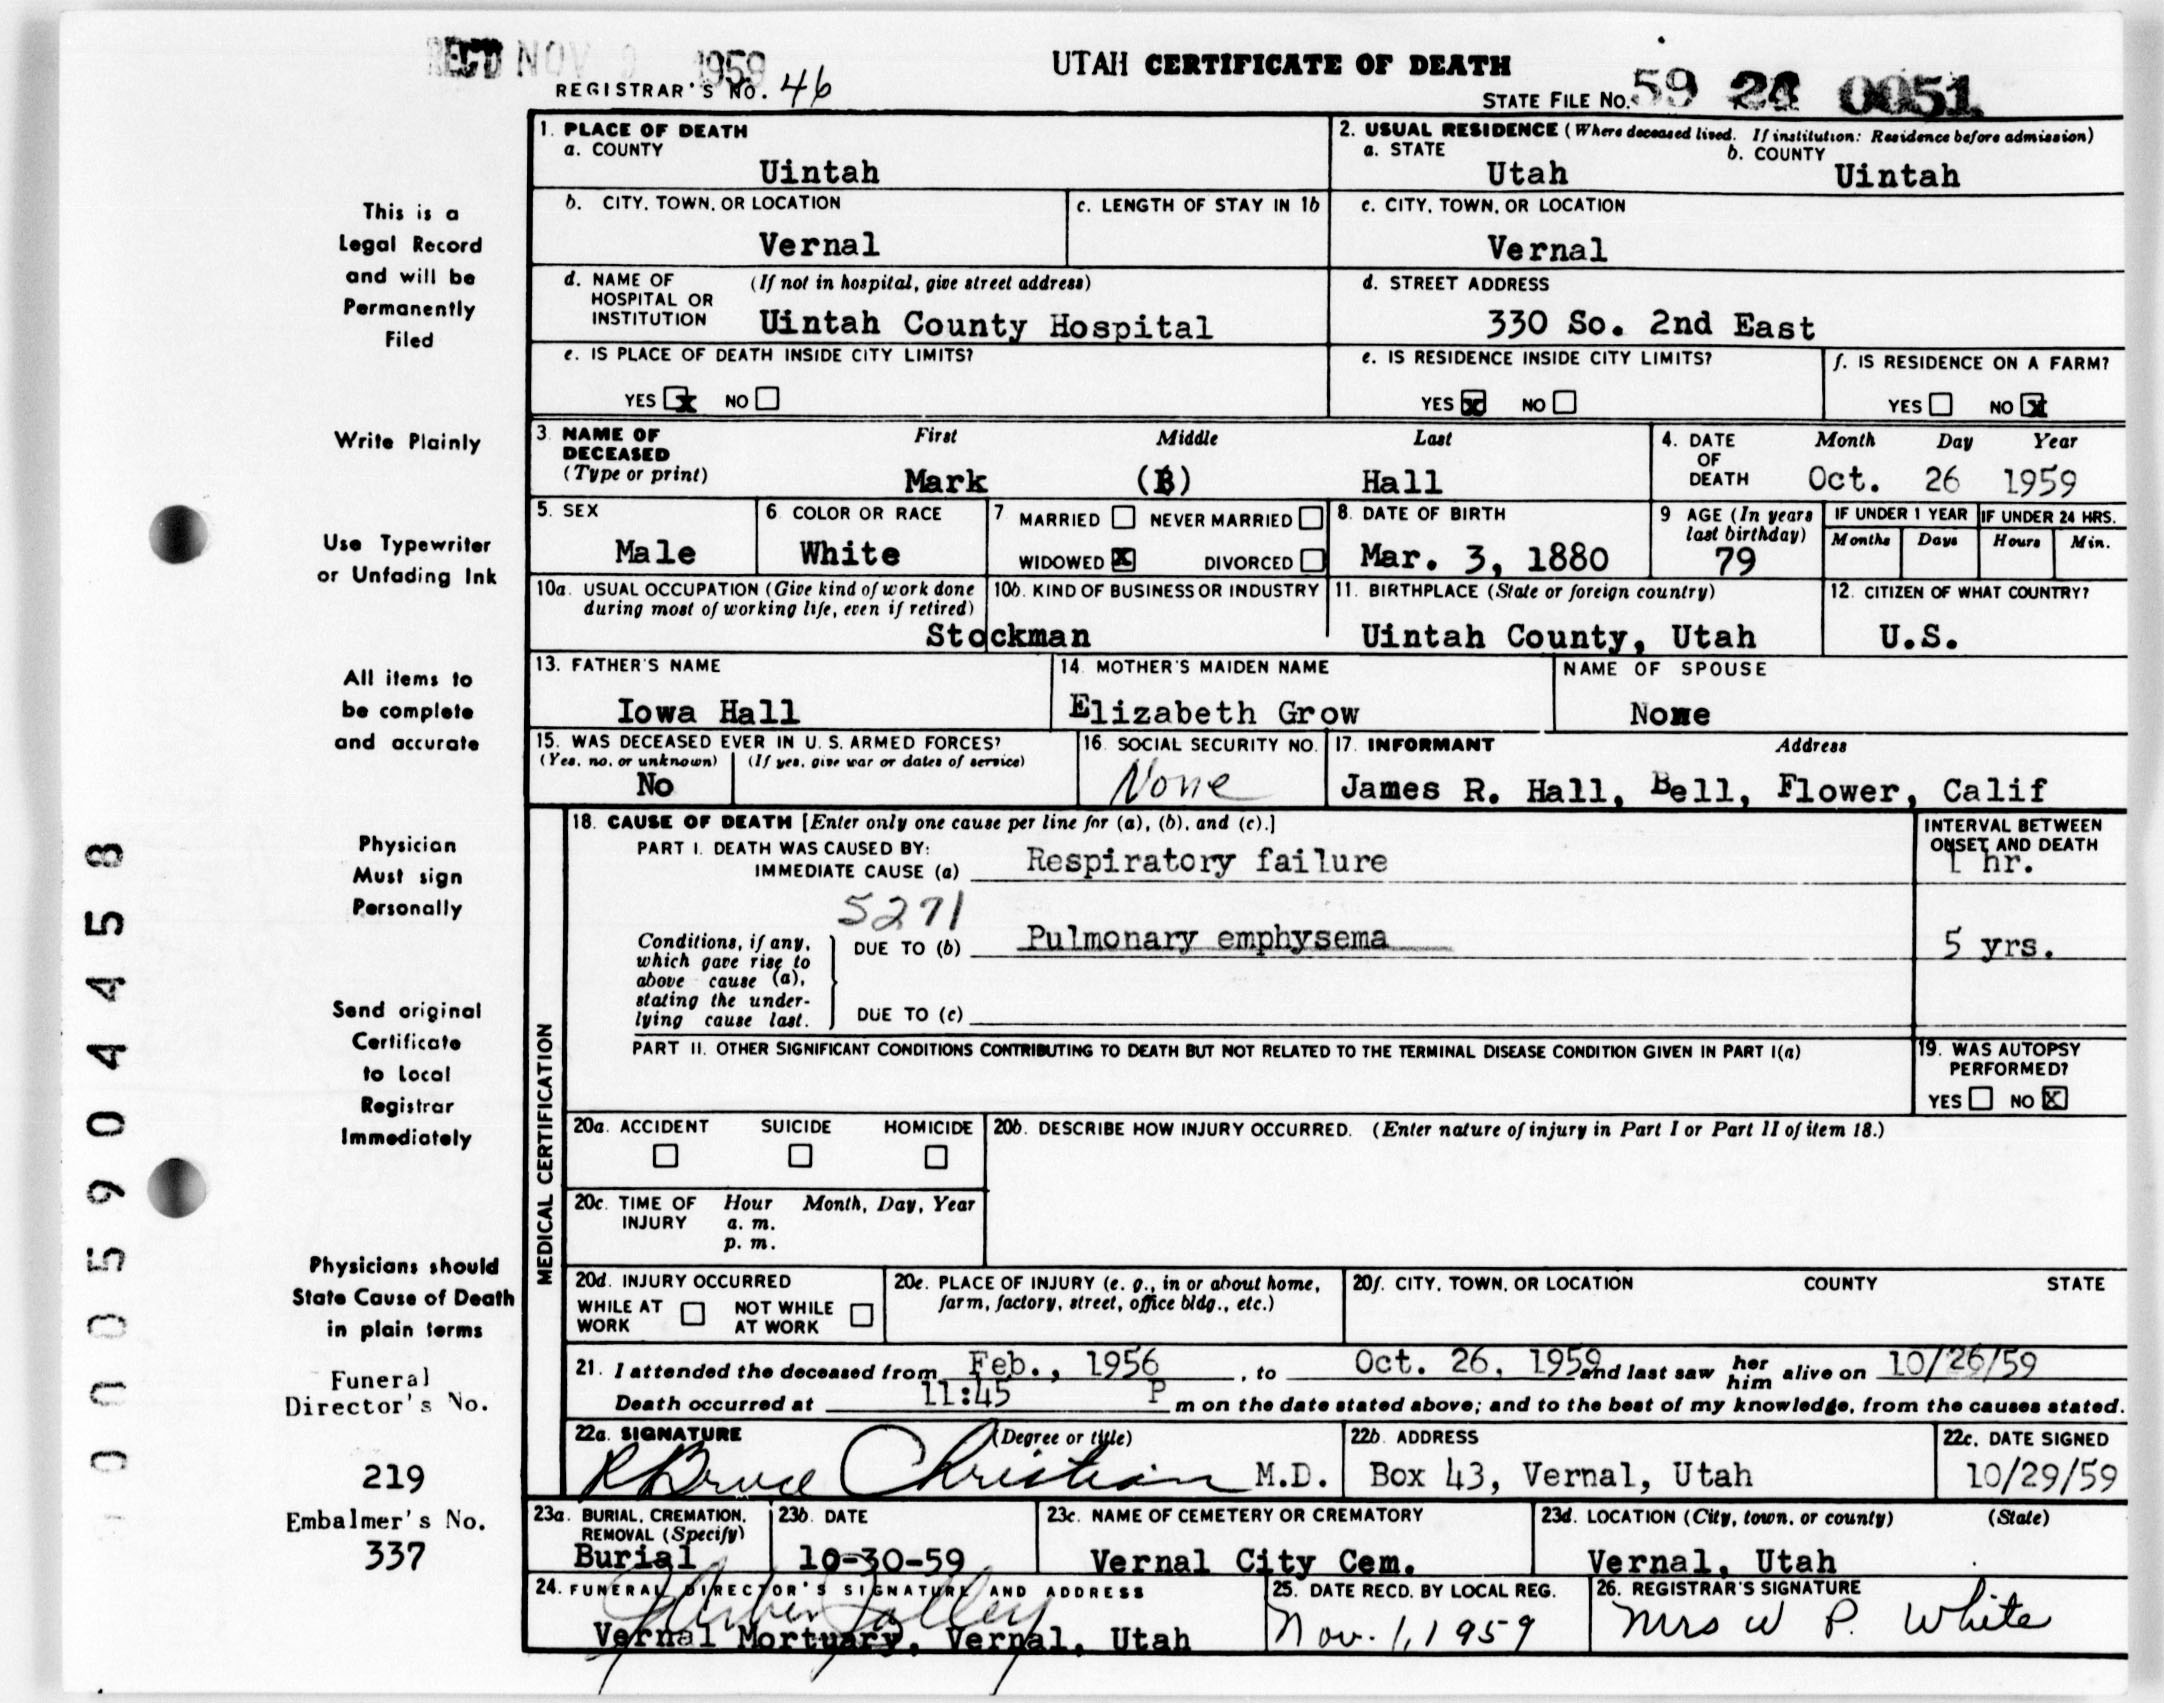 REC'D NOV 1959
UTAH CERTIFICATE OF DEATH
REGISTRAR'S NO. 46
STATE FILE NO. 59 24 0051
1. PLACE OF DEATH
a. COUNTY
Uintah
2. USUAL RESIDENCE (Where deceased lived. If institution: Residence before admission)
a. STATE b. COUNTY
Utah Uintah
b. CITY, TOWN, OR LOCATION
Vernal
c. LENGTH OF STAY IN 1b
c. CITY, TOWN, OR LOCATION
Vernal
d. NAME OF HOSPITAL OR INSTITUTION (If not in hospital, give street address)
Uintah County Hospital
d. STREET ADDRESS
330 So. 2nd East
e. IS PLACE OF DEATH INSIDE CITY LIMITS?
YES x NO
e. IS RESIDENCE INSIDE CITY LIMITS?
YES x NO
f. IS RESIDENCE ON A FARM?
YES NO x
3. NAME OF DECEASED (Type or print)
First Middle Last
Mark (B) Hall
4. DATE OF DEATH
Month Day Year
Oct. 26 1959
5. SEX
Male
6. COLOR OR RACE
White
7 MARRIED NEVER MARRIED
WIDOWED x DIVORCED
8. DATE OF BIRTH
Mar. 3, 1880
9 AGE (In years last birthday)
79
IF UNDER 1 YEAR
Months Days
IF UNDER 24 HRS.
Hours Min.
10a. USUAL OCCUPATION (Give kind of work done during most of working life, even if retired)
10b. KIND OF BUSINESS OR INDUSTRY
Stockman
11. BIRTHPLACE (State or foreign country)
Uintah County, Utah
12. CITIZEN OF WHAT COUNTRY?
U.S.
13. FATHER'S NAME
Iowa Hall
14. MOTHER'S MAIDEN NAME
Elizabeth Grow
NAME OF SPOUSE
None
15. WAS DECEASED EVER IN U.S. ARMED FORCES?
(Yes, no, or unknown) (If yes, give war or dates of service)
No
16. SOCIAL SECURITY NO.
None
17. INFORMANT Address
James R. Hall, Bell, Flower, Calif
MEDICAL CERTIFICATION
18. CAUSE OF DEATH [Enter only one cause per line for (a), (b), and (c).]
PART I. DEATH WAS CAUSED BY:
IMMEDIATE CAUSE (a) Respiratory failure
INTERVAL BETWEEN ONSET AND DEATH
1 hr.
5271
Conditions, if any, which gave rise to above cause (a), stating the underlying cause last.
DUE TO (b) Pulmonary emphysema
5 yrs.
DUE TO (c)
PART II. OTHER SIGNIFICANT CONDITIONS CONTRIBUTING TO DEATH BUT NOT RELATED TO THE TERMINAL DISEASE CONDITION GIVEN IN PART I(a)
19. WAS AUTOPSY PERFORMED?
YES NO X
20a. ACCIDENT SUICIDE HOMICIDE
20b. DESCRIBE HOW INJURY OCCURRED. (Enter nature of injury in Part I or Part II of item 18.)
20c. TIME OF INJURY Hour Month, Day, Year
a. m.
p. m.
20d. INJURY OCCURRED
WHILE AT WORK NOT WHILE AT WORK
20e. PLACE OF INJURY (e. g., in or about home, farm, factory, street, office bldg., etc.)
20f. CITY, TOWN, OR LOCATION COUNTY STATE
21. I attended the deceased from Feb., 1956, to Oct. 26, 1959 and last saw her him alive on 10/26/59
Death occurred at 11:45 P m on the date stated above; and to the best of my knowledge, from the causes stated.
22a. SIGNATURE (Degree or title)
R Bruce Christian M.D.
22b. ADDRESS
Box 43, Vernal, Utah
22c. DATE SIGNED
10/29/59
23a. BURIAL, CREMATION, REMOVAL (Specify)
Burial
23b. DATE
10-30-59
23c. NAME OF CEMETERY OR CREMATORY
Vernal City Cem.
23d. LOCATION (City, town, or county) (State)
Vernal, Utah
24. FUNERAL DIRECTOR'S SIGNATURE AND ADDRESS
Vernal Mortuary, Vernal, Utah
25. DATE RECD. BY LOCAL REG.
Nov. 1, 1959
26. REGISTRAR'S SIGNATURE
Mrs W P. White
This is a
Legal Record
and will be
Permanently
Filed
Write Plainly
Use Typewriter
or Unfading Ink
All items to
be complete
and accurate
Physician
Must sign
Personally
Send original
Certificate
to Local
Registrar
Immediately
Physicians should
State Cause of Death
in plain terms
Funeral
Director's No.
219
Embalmer's No.
337
0005904458